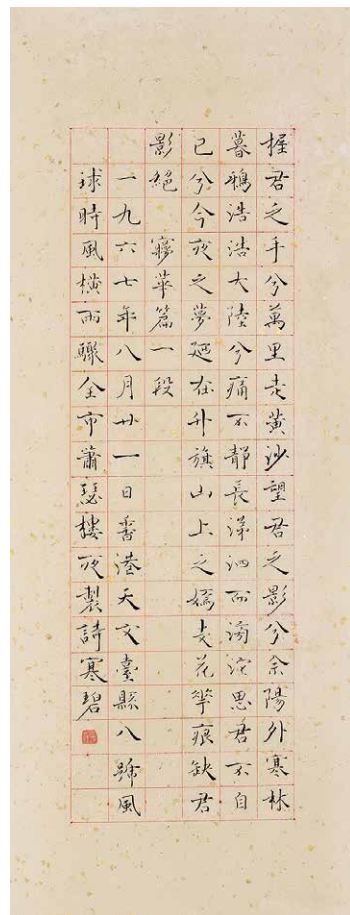 握君之手兮萬里走黃沙望君之影兮余陽外寒林
暮鴉浩浩大陸兮痛不靜長涕泗而滂沱思君不自
已兮今夜之夢廻在升旗山上之嫣支花痕缺君
影絕 㝱華篇一段
一九六七年八月廿一日香港天文臺縣八號風
球時風橫雨驟全市蕭瑟樓夜製詩寒碧